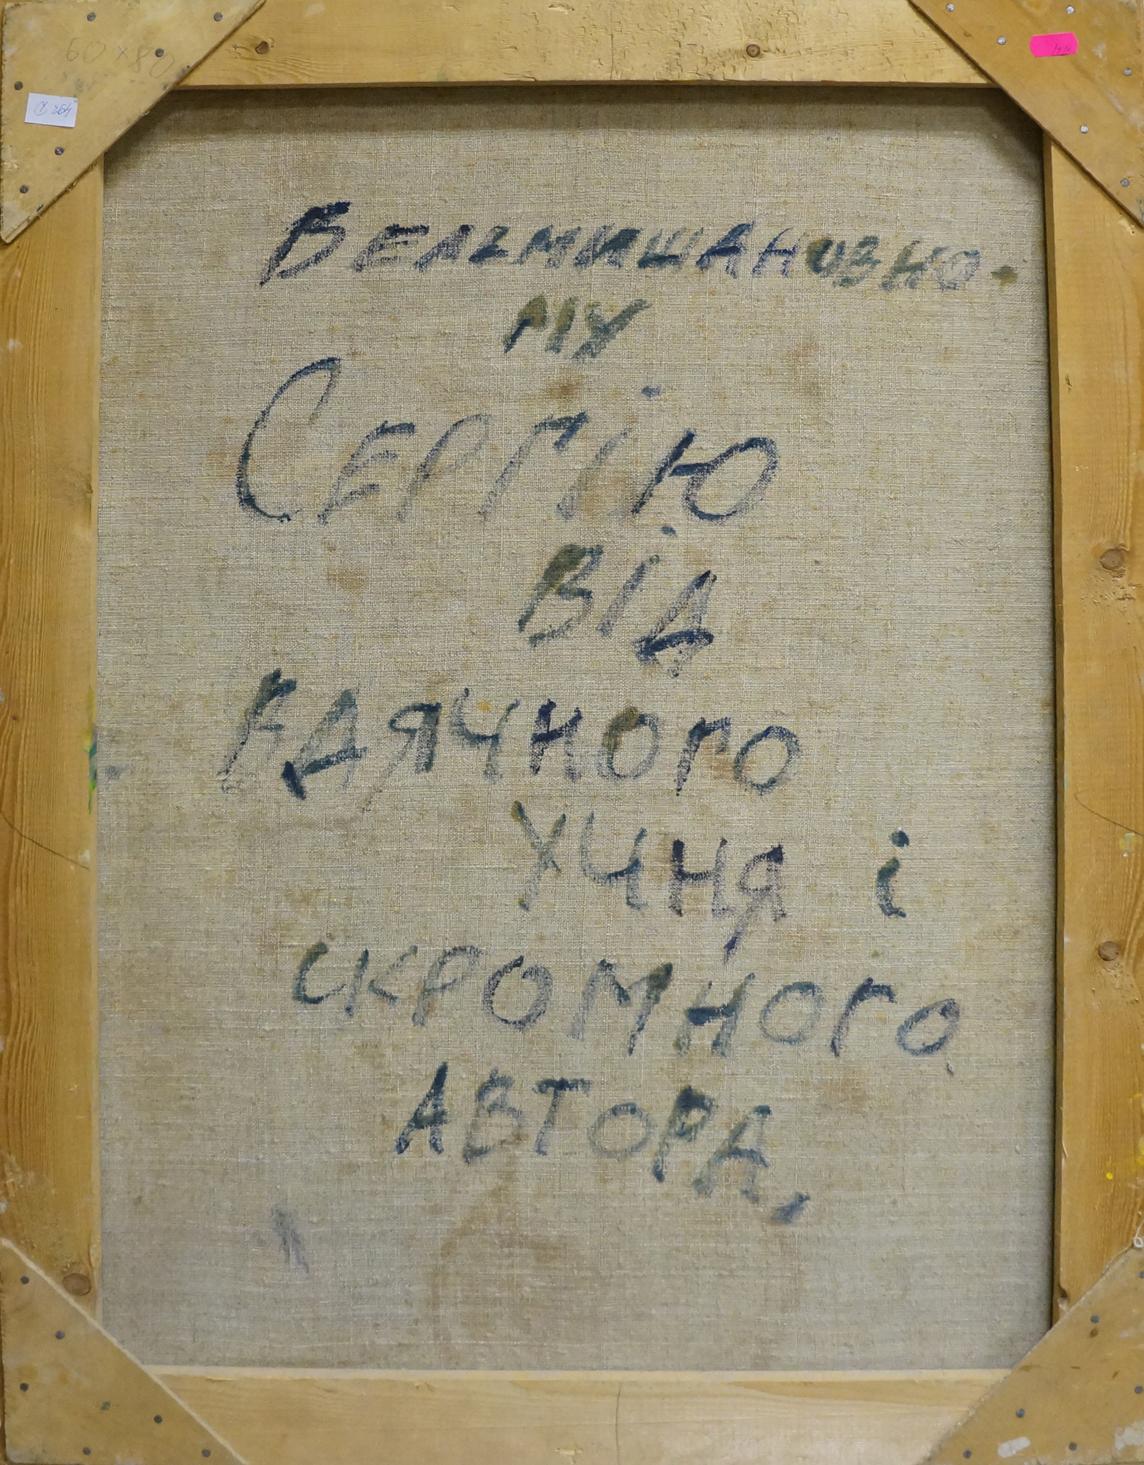 60×80
264
ВЕЛЬМИШАНОВНО-
МУ
СЕРГІЮ
ВІД
ВДЯЧНОГО
УЧНЯ і
СКРОМНОГО
АВТОРА,